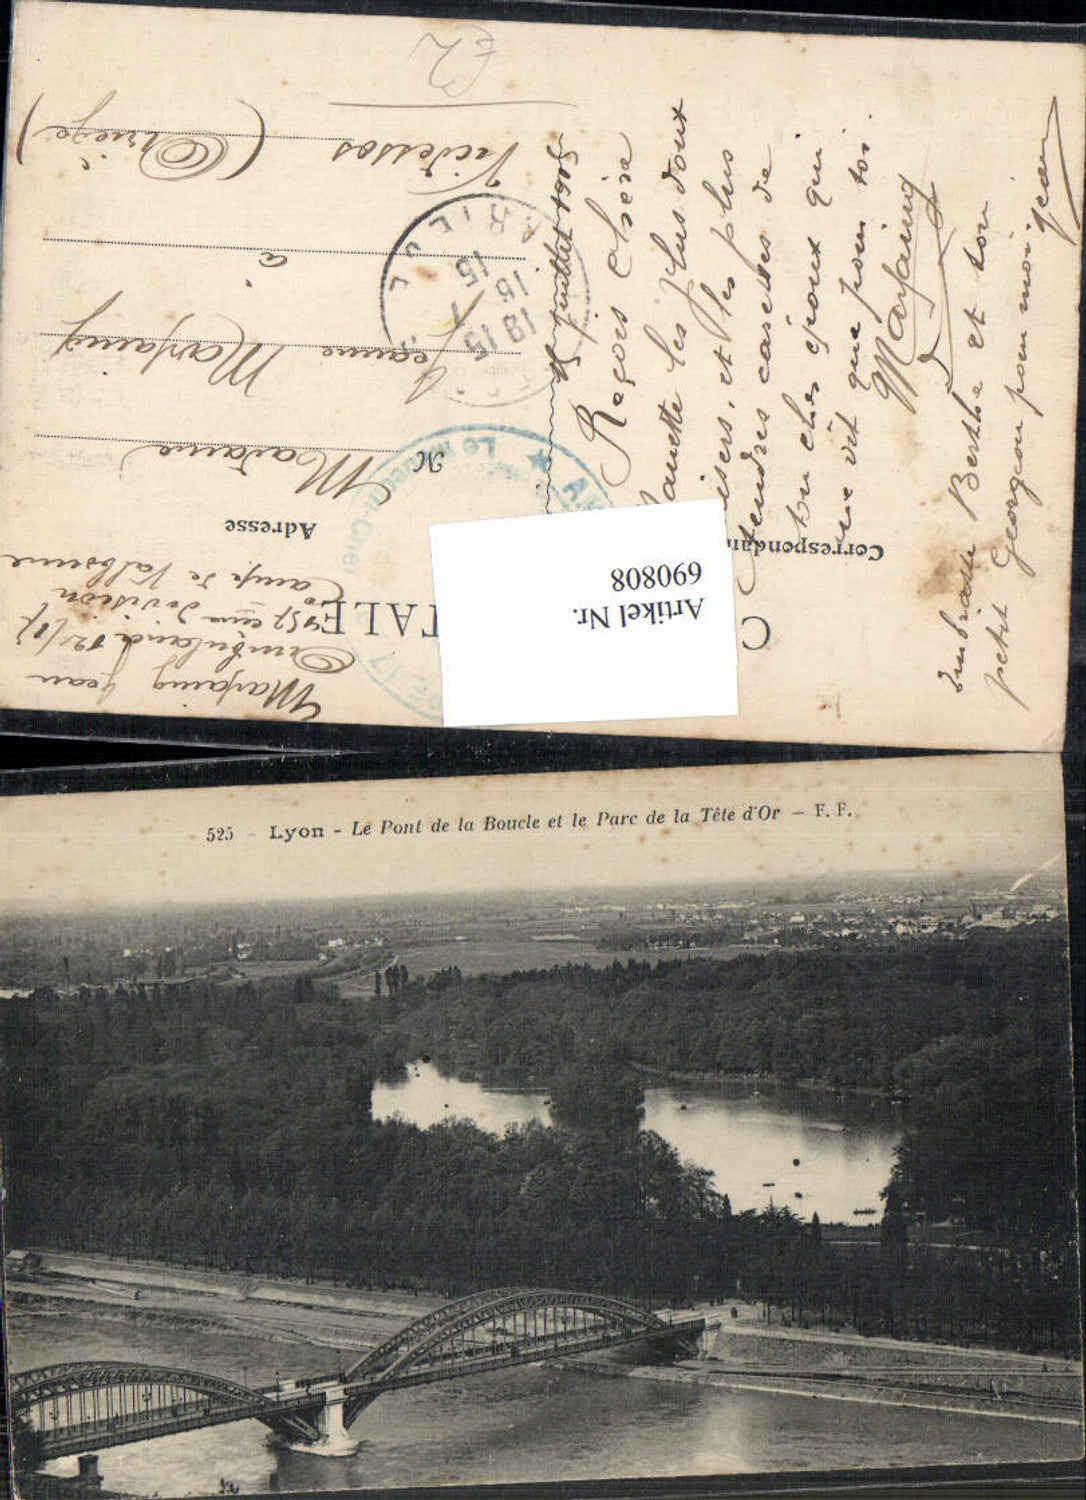 Marfaing Jean
Ambulance 12/17
157 eme division
Camp de Valbonne
C TALE
Correspondan
Adresse
M
Madame
Jeanne Marfaing
à
Vicdessos
(Ariège)
ARIEGE
19 15
15 7
15
Le Médecin-Chef
Artikel Nr.
690808
juillet 1915
Reçois chère
Jeannette les plus doux
baisers, et les plus
tendres caresses de
ton cher époux qui
ne vit que pour toi.
Marfaing
Embrasse Berthe et son
petit Georgeou pour moi.
Jean
525 - Lyon - Le Pont de la Boucle et le Parc de la Tête d'Or - F. F.